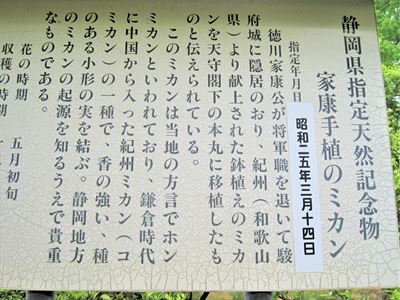 静岡県指定天然記念物
家康手植のミカン
指定年月日 昭和二五年三月十四日
徳川家康公が将軍職を退いて駿
府城に隠居のおり、紀州（和歌山
県）より献上された鉢植えのミカ
ンを天守閣下の本丸に移植したも
のと伝えられている。
このミカンは当地の方言でホン
ミカンといわれており、鎌倉時代
に中国から入った紀州ミカン（コ
ミカン）の一種で、香の強い、種
のある小形の実を結ぶ。静岡地方
のミカンの起源を知るうえで貴重
なものである。
花の時期 五月初旬
収穫の時期